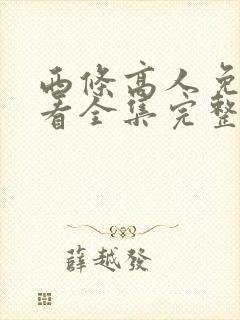 西條高人免
看全集完整
薛越發